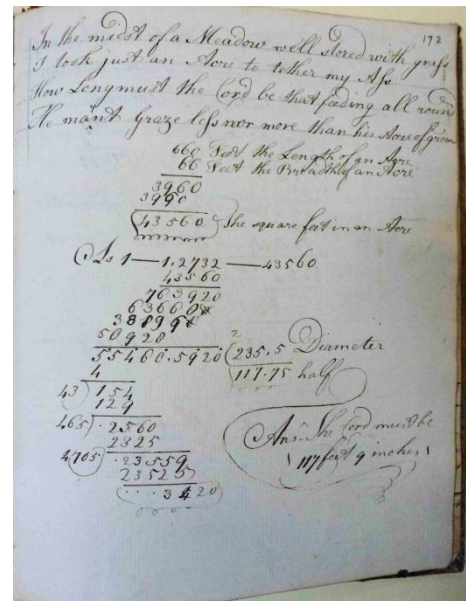 172
In the midst of a Meadow well stored with grass
I took just an Acre to tether my Ass
How Long must the Cord be that feeding all round
He mant Graze less nor more than his Acre of ground
660 Feet the Length of an Acre
66 Feet the Breadth of an Acre
3960
3960
43560 The square feet in an Acre
As 1 — 1,2732 — 43560
43560
763920
63660
38196
50928
55460.5920 (235,5 Diameter
4 117.75 half
43) 154
129
465) .2560
2325
4705) .23559
23525
...3420
Ans. The Cord must be
117 feet 9 inches